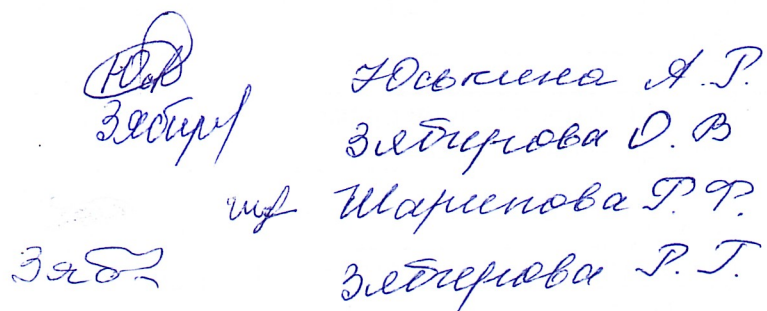 Юськина А.Р.
Зябир Зябирова О.В
Шарипова Р.Ф.
Зяб Зябирова Р.Г.